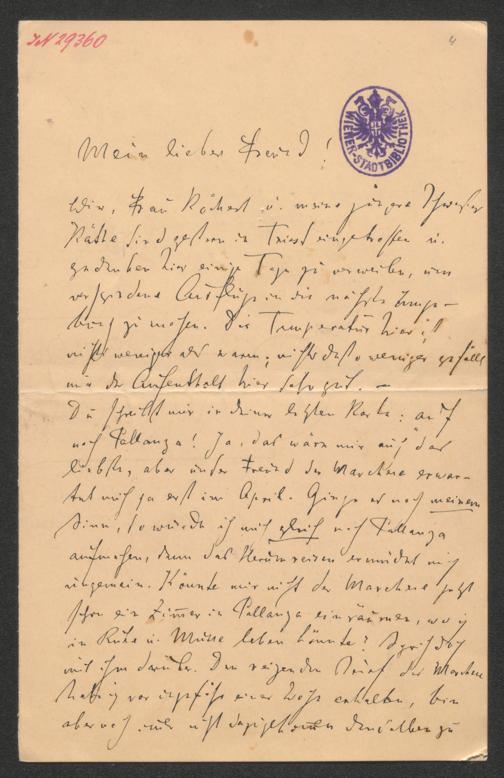 JN 29360
4
WIENER-STADTBIBLIOTHEK
Mein lieber Freund!
Wir, Frau Köchert u. meine jüngere Schwester
Käthe sind gestern in Triest eingetroffen u.
gedenken hier einige Tage zu verweilen, um
verschiedene Ausflüge in die nächste Umge-
bung zu machen. Die Temperatur hier ist
nichts weniger als warm, nichtsdestoweniger gefällt
mir der Aufenthalt hier sehr gut. –
Du schreibst mir in deiner letzten Karte: auf
nach Pallanza! Ja, das wäre mir auch das
liebste, aber unser Freund der Marchese erwar-
tet mich ja erst im April. Ginge es nach meinem
Sinn, so würde ich mich gleich nach Pallanza
aufmachen, denn das Herumreisen ermüdet mich
ungemein. Könnte mir nicht der Marchese jetzt
schon ein Zimmer in Pallanza einräumen, wo ich
in Ruhe u. Muße leben könnte? Sprich doch
mit ihm darüber. Den reizenden Brief des Marchese
habe ich vor ungefähr einer Woche erhalten, bin
aber noch nicht dazugekommen denselben zu